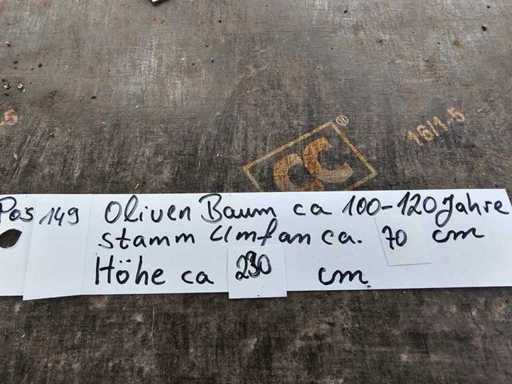 Pos 149 Oliven Baum ca 100-120 Jahre
stamm Umfan ca. 70 cm
Höhe ca 230 cm
CC ®
16/1.5